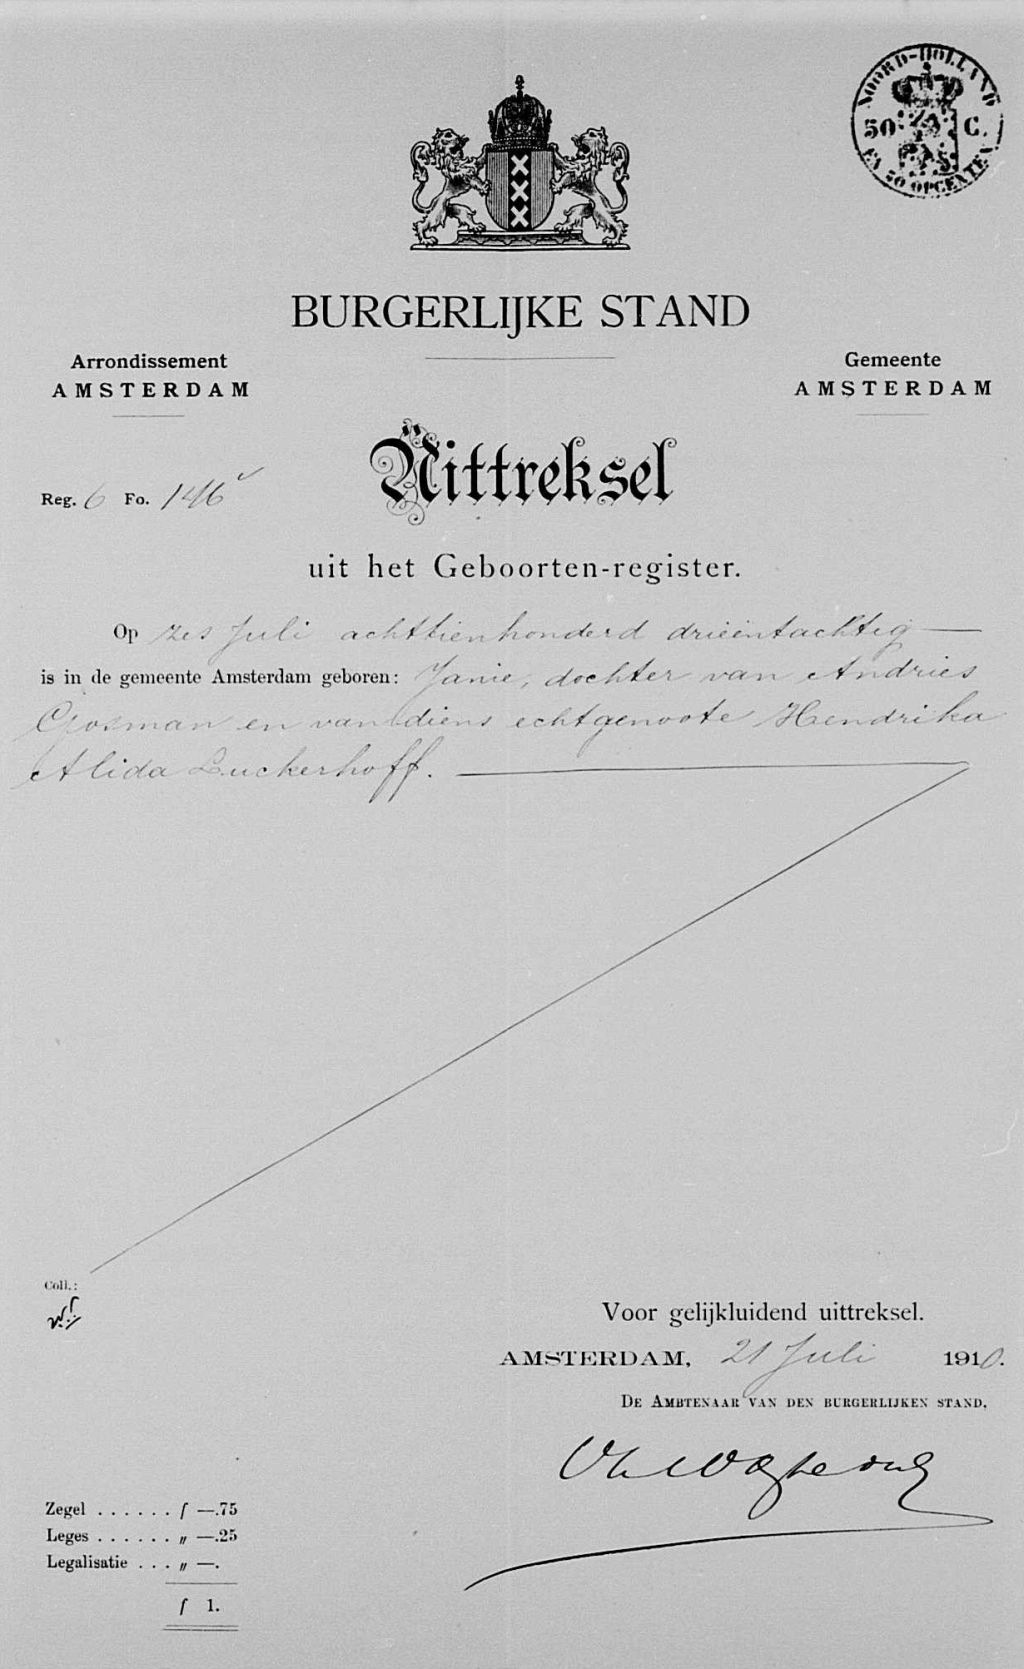 NOORD-HOLLAND
50 C.
EN 50 OPCENTEN
BURGERLIJKE STAND
Arrondissement
AMSTERDAM
Gemeente
AMSTERDAM
Reg. 6 Fo. 146v
Uittreksel
uit het Geboorten-register.
Op zes Juli achttienhonderd drieëntachtig
is in de gemeente Amsterdam geboren: Janie, dochter van Andries
Gosman en van diens echtgenoote Hendrika
Alida Luckerhoff.
Coll.:
Voor gelijkluidend uittreksel.
AMSTERDAM, 21 Juli 1910.
DE AMBTENAAR VAN DEN BURGERLIJKEN STAND,
Zegel . . . . . . ƒ —.75
Leges . . . . . . „ —.25
Legalisatie . . . „ —.
ƒ 1.